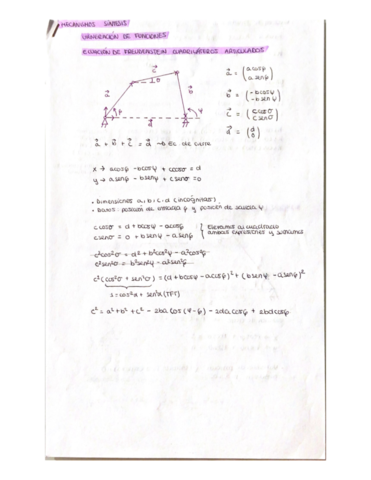 MECANISMOS SÍNTESIS
GENERACIÓN DE FUNCIONES
ECUACIÓN DE FREUDENSTEIN CUADRILÁTEROS ARTICULADOS
a⃗ = (a cosφ
a senφ)
b⃗ = (-b cosψ
-b senψ)
c⃗ = (c cosσ
c senσ)
d⃗ = (d
0)
a⃗ + b⃗ + c⃗ = d⃗ → Ec. de cierre
x → a cosφ - b cosψ + c cosσ = d
y → a senφ - b senψ + c senσ = 0
• Dimensiones a, b, c, d (incógnitas)
• Datos: posición de entrada φ y posición de salida ψ
c cosσ = d + b cosψ - a cosφ
c senσ = 0 + b senψ - a senφ
Elevamos al cuadrado
ambas expresiones y sumamos
c²cos²σ = d² + b²cos²ψ - a²cos²φ
c²sen²σ = b²sen²ψ - a²sen²φ
c²(cos²σ + sen²σ) = (d + b cosψ - a cosφ)² + (b senψ - a senφ)²
1 = cos²x + sen²x (TFT)
c² = a² + b² + c² - 2ba cos(ψ - φ) - 2da cosφ + 2bd cosφ